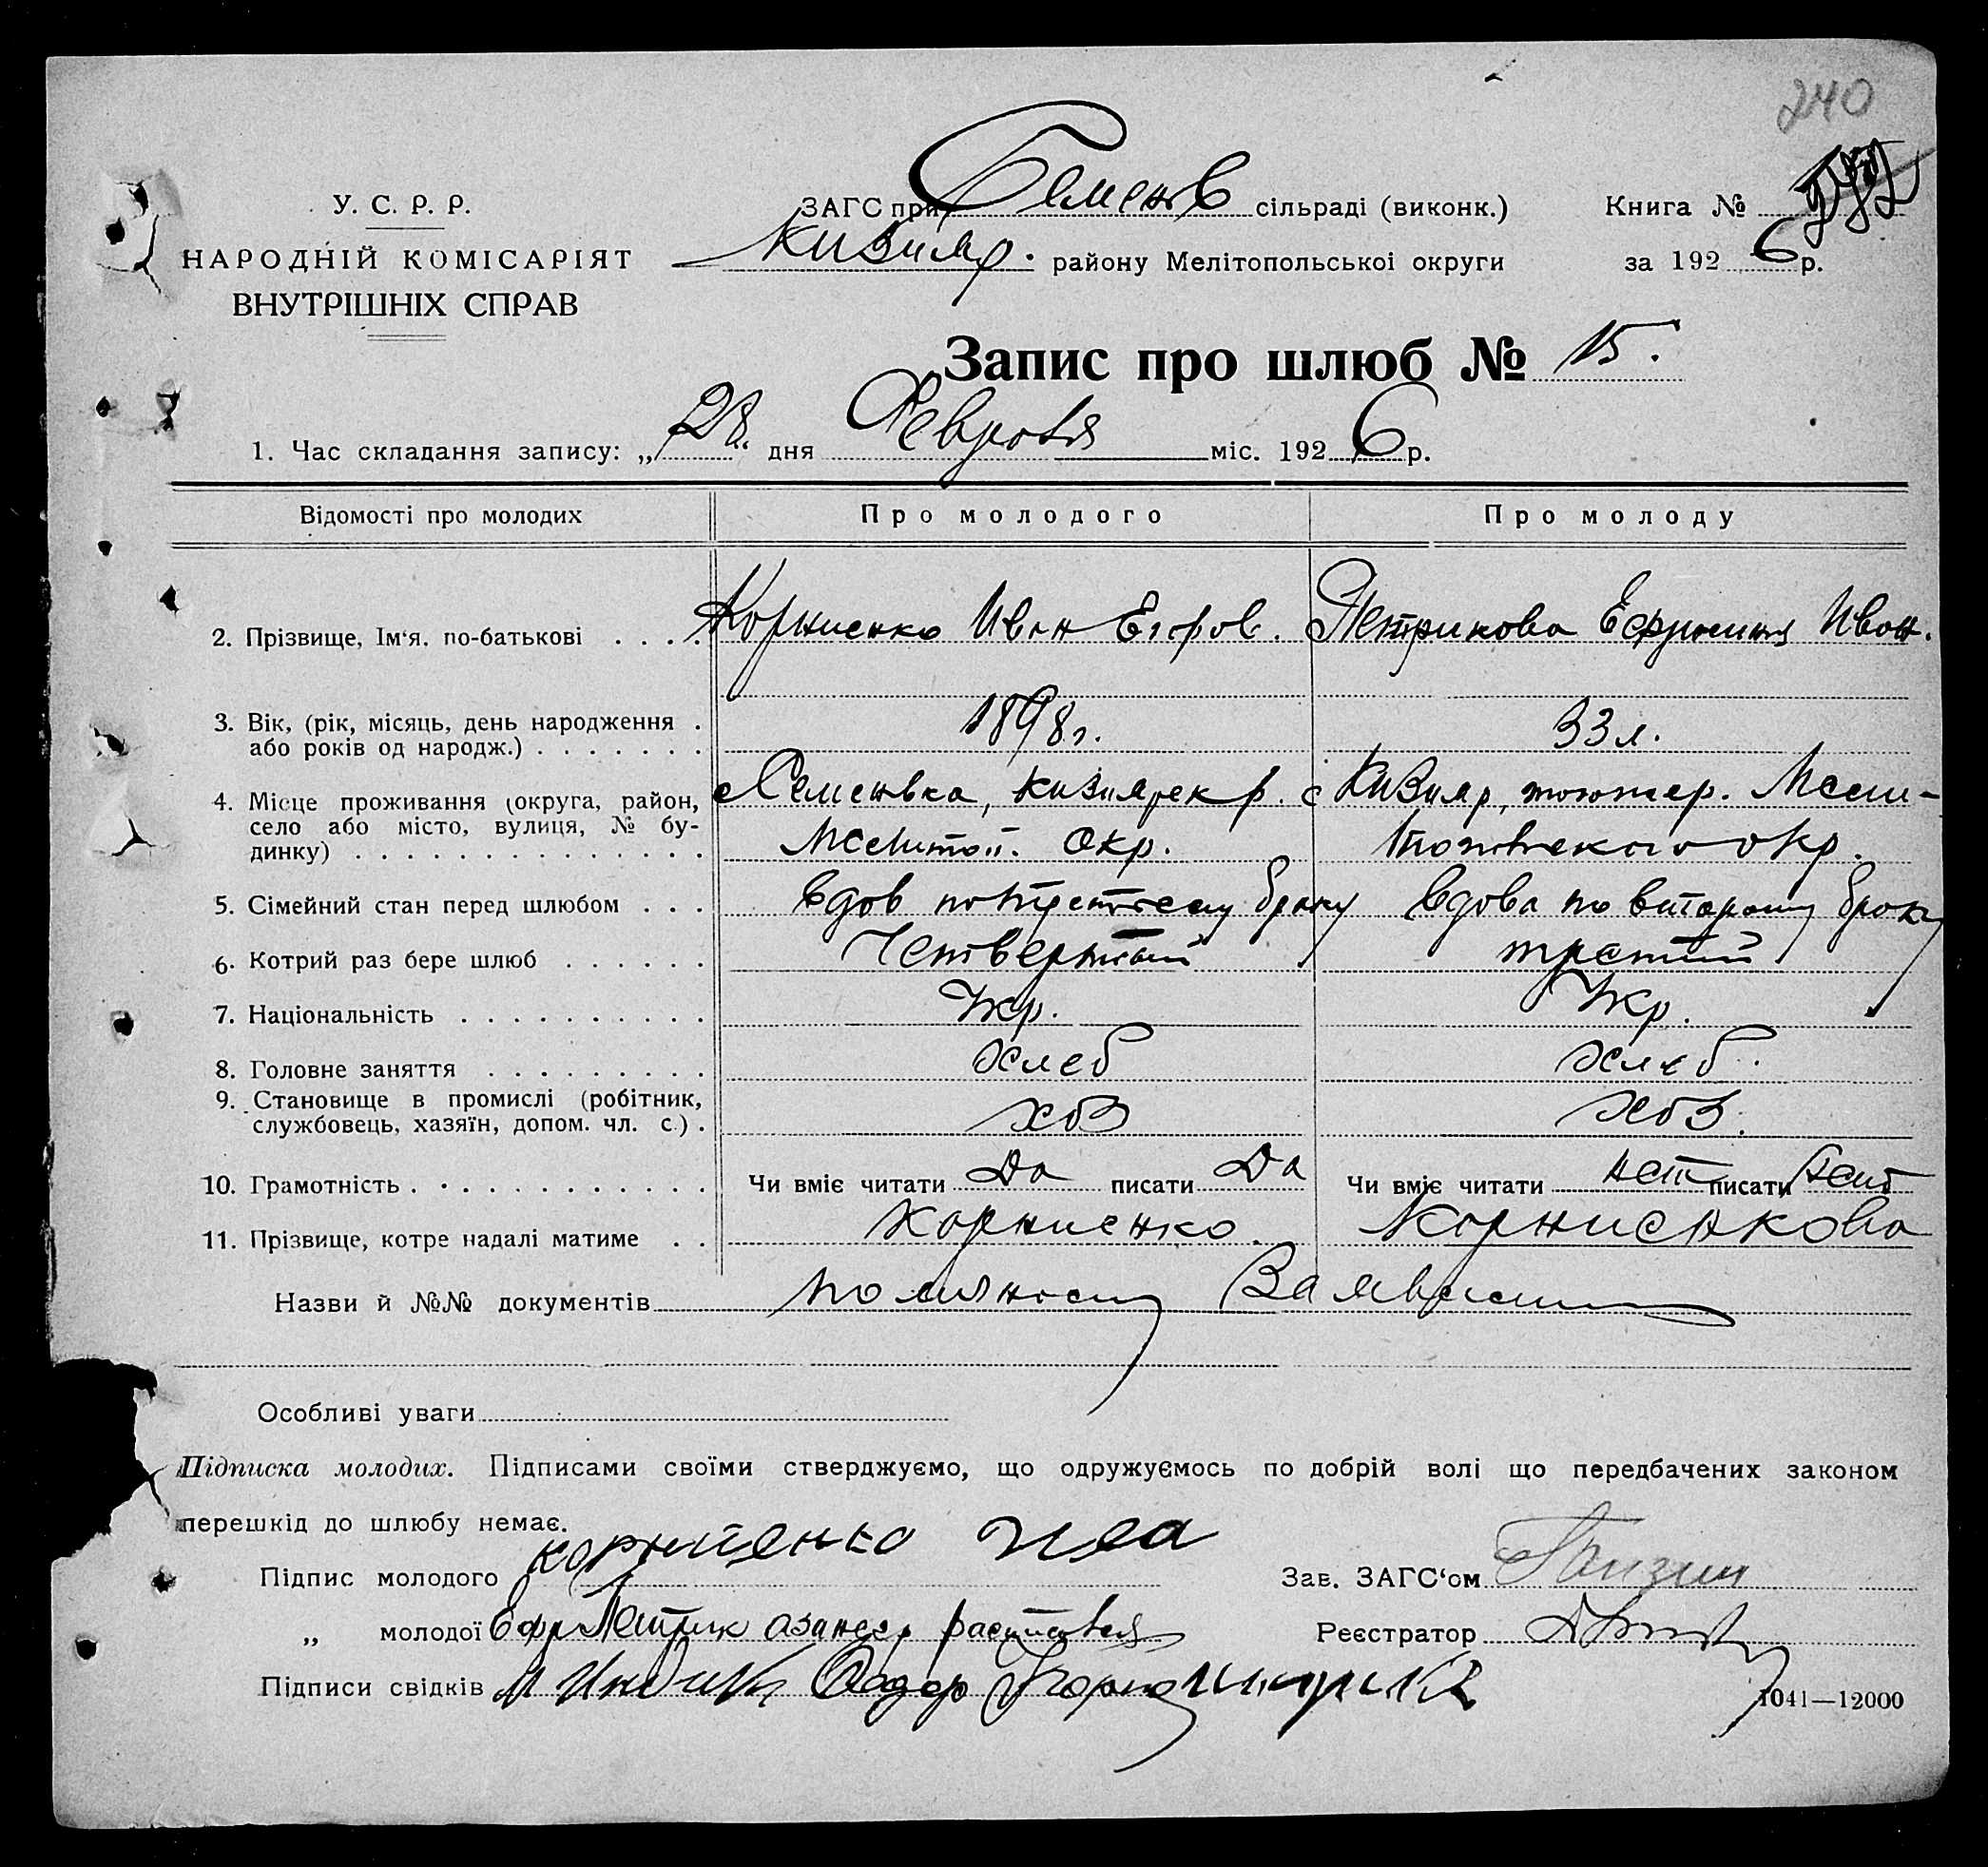 240
У. С. Р. Р.
НАРОДНІЙ КОМІСАРІЯТ
ВНУТРІШНІХ СПРАВ
ЗАГС при Семенов сільраді (виконк.)
Кизияр. району Мелітопольської округи
Книга №
за 1926 р.
Запис про шлюб № 15.
1. Час складання запису: „28" дня Февраля міс. 1926 р.
Відомості про молодих Про молодого Про молоду
2. Прізвище, Ім'я, по-батькові . . . . Корниенко Иван Егоров. Петрикова Ефросиния Иван.
3. Вік, (рік, місяць, день народження . або років од народж.) . . . . . . . 1898 г. 33 л.
4. Місце проживання (округа, район, село або місто, вулиця, № будинку) . . . . . . . . . . . . . . с Семеновка, Кизиярск р. Мелитоп. Окр. с Кизияр, Мели-
топольского окр.
5. Сімейний стан перед шлюбом . . . вдов по третьему браку вдова по второму браку
6. Котрий раз бере шлюб . . . . . . Четвертый третий
7. Національність . . . . . . . . . . Укр. Укр.
8. Головне заняття . . . . . . . . . Хлеб Хлеб.
9. Становище в промислі (робітник, службовець, хазяїн, допом. чл. с.) .
10. Грамотність . . . . . . . . . . . . Чи вміє читати Да писати Да Чи вміє читати нет писати нет
11. Прізвище, котре надалі матиме . . Корниенко. Корниенкова
Назви й №№ документів
Особливі уваги
Підписка молодих. Підписами своїми стверджуємо, що одружуємось по добрій волі що передбачених законом
перешкід до шлюбу немає.
Підпис молодого Корниенко Ива
Зав. ЗАГС'ом
„ молодої Ефр Петрик азанеег расписався
Реєстратор
Підписи свідків
1041—12000